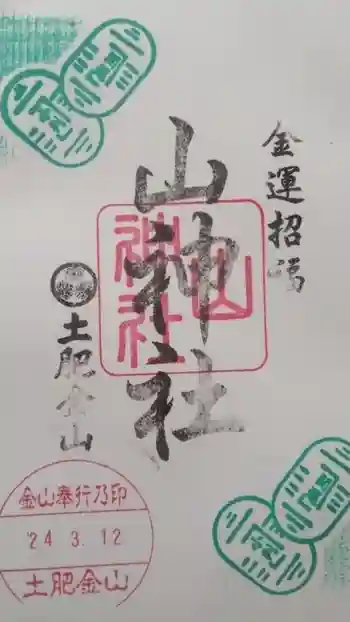 金運招福
山神社
山神社
土肥金山
金山奉行乃印
'24 3. 12
土肥金山